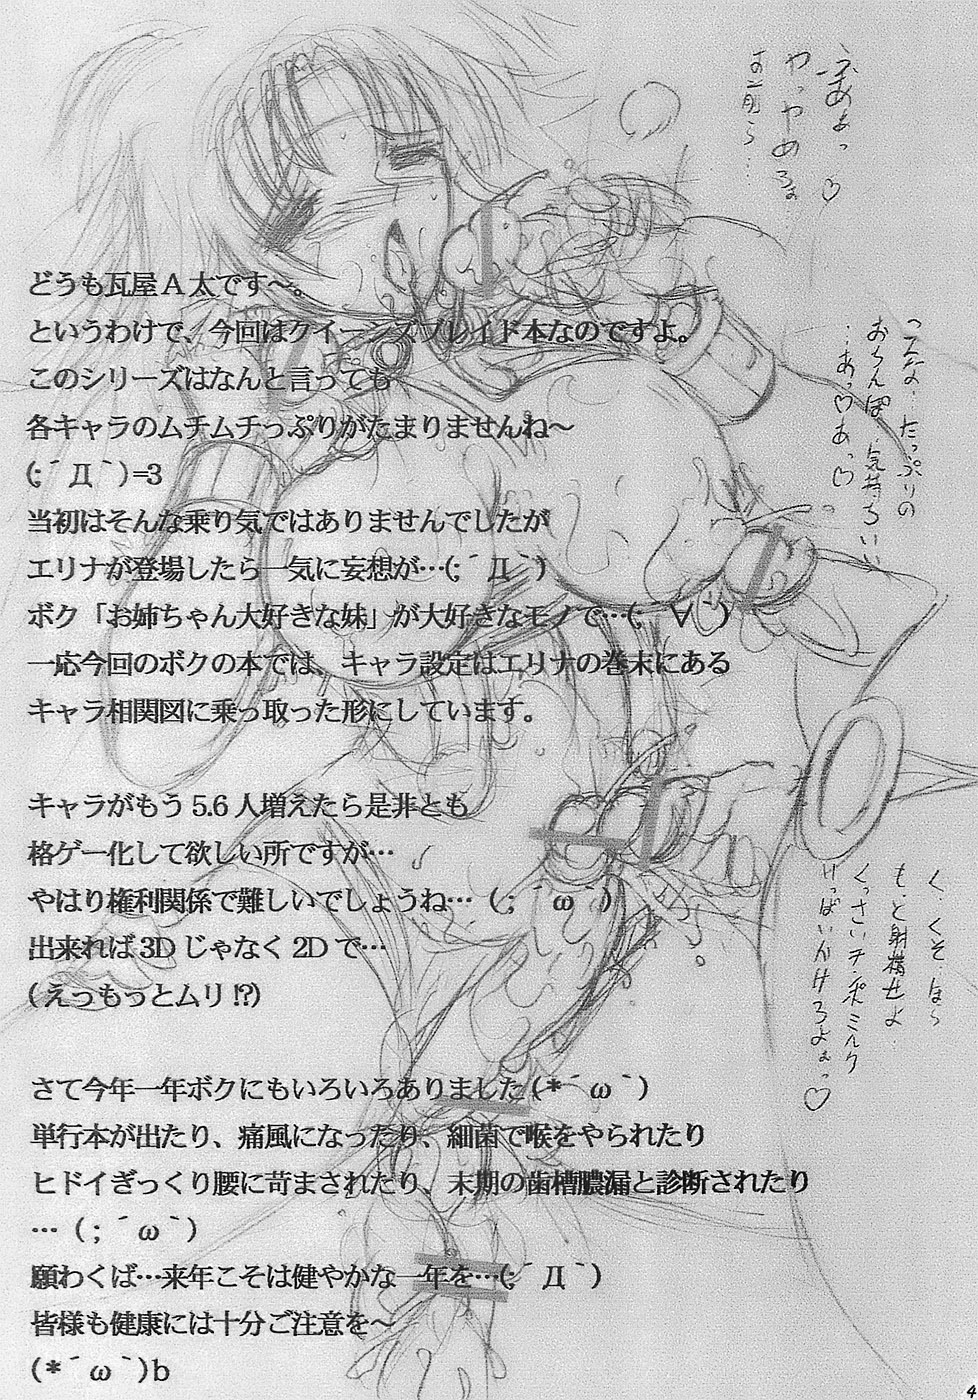 どうも瓦屋A太です～。
というわけで、今回はクイーンズブレイド本なのですよ。
このシリーズはなんと言っても
各キャラのムチムチっぷりがたまりませんね～
(;´Д｀)=3
当初はそんな乗り気ではありませんでしたが
エリナが登場したら一気に妄想が…(;´Д｀)
ボク「お姉ちゃん大好きな妹」が大好きなモノで…(;´∀｀)
一応今回のボクの本では、キャラ設定はエリナの巻末にある
キャラ相関図に乗っ取った形にしています。
キャラがもう5.6人増えたら是非とも
格ゲー化して欲しい所ですが…
やはり権利関係で難しいでしょうね…(；´ω｀)
出来れば3Dじゃなく2Dで…
(えっもっとムリ!?)
さて今年一年ボクにもいろいろありました(*´ω｀)
単行本が出たり、痛風になったり、細菌で喉をやられたり
ヒドイぎっくり腰に苛まされたり、末期の歯槽膿漏と診断されたり
…(；´ω｀)
願わくば…来年こそは健やかな一年を…(;´Д｀)
皆様も健康には十分ご注意を～
(*´ω｀)b